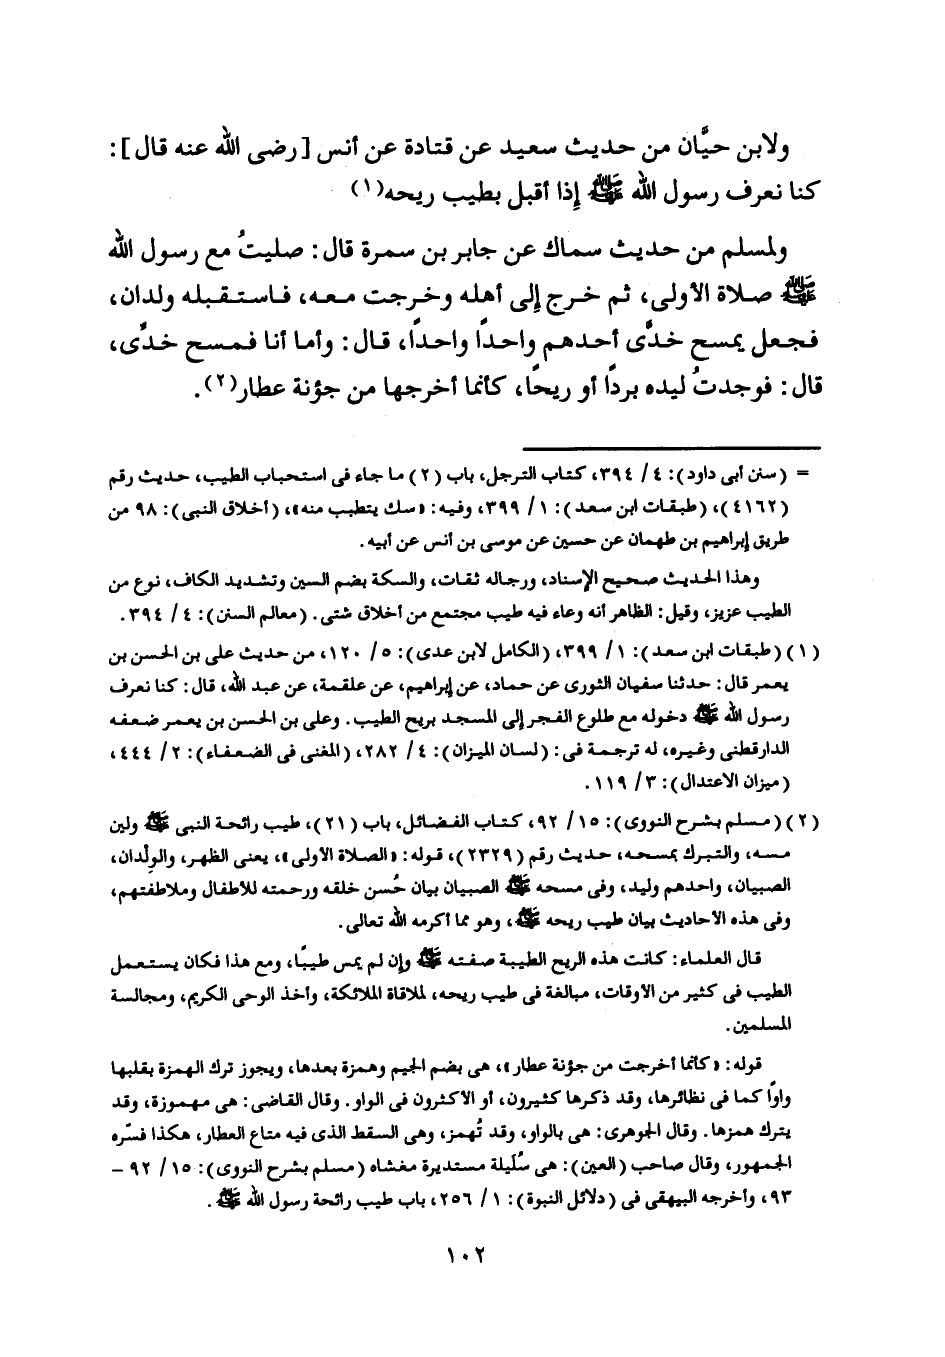 ولابن حيَّان من حديث سعيد عن قتادة عن أنس [رضى الله عنه قال]:
كنا نعرف رسول الله ﷺ إذا أقبل بطيب ريحه(١)
ولمسلم من حديث سماك عن جابر بن سمرة قال: صليتُ مع رسول الله
ﷺ صلاة الأولى، ثم خرج إلى أهله وخرجت معه، فاستقبله ولدان،
فجعل يمسح خدَّى أحدهم واحدًا واحدًا، قال: وأما أنا فمسح خدَّى،
قال: فوجدتُ ليده بردًا أو ريحًا، كأنما أخرجها من جؤنة عطار(٢).
= (سنن أبى داود): ٤/ ٣٩٤، كتاب الترجل، باب (٢) ما جاء فى استحباب الطيب، حديث رقم
(٤١٦٢)، (طبقات ابن سعد): ١/ ٣٩٩، وفيه: «سك يتطيب منه»، (أخلاق النبى): ٩٨ من
طريق إبراهيم بن طهمان عن حسين عن موسى بن أنس عن أبيه.
وهذا الحديث صحيح الإسناد، ورجاله ثقات، والسكة بضم السين وتشديد الكاف، نوع من
الطيب عزيز، وقيل: الظاهر أنه وعاء فيه طيب مجتمع من أخلاق شتى. (معالم السنن): ٤/ ٣٩٤.
(١) (طبقات ابن سعد): ١/ ٣٩٩، (الكامل لابن عدى): ٥/ ١٢٠، من حديث على بن الحسن بن
يعمر قال: حدثنا سفيان الثورى عن حماد، عن إبراهيم، عن علقمة، عن عبد الله، قال: كنا نعرف
رسول الله ﷺ دخوله مع طلوع الفجر إلى المسجد بريح الطيب. وعلى بن الحسن بن يعمر ضعفه
الدارقطنى وغيره، له ترجمة فى: (لسان الميزان): ٤/ ٢٨٢، (المغنى فى الضعفاء): ٢/ ٤٤٤،
(ميزان الاعتدال): ٣/ ١١٩.
(٢) (مسلم بشرح النووى): ١٥/ ٩٢، كتاب الفضائل، باب (٢١)، طيب رائحة النبى ﷺ ولين
مسه، والتبرك بمسحه، حديث رقم (٢٣٢٩)، قوله: «الصلاة الأولى»، يعنى الظهر، والوِلْدان،
الصبيان، واحدهم وليد، وفى مسحه ﷺ الصبيان بيان حُسن خلقه ورحمته للأطفال وملاطفتهم،
وفى هذه الأحاديث بيان طيب ريحه ﷺ، وهو مما أكرمه الله تعالى.
قال العلماء: كانت هذه الريح الطيبة صفته ﷺ وإن لم يمس طيبًا، ومع هذا فكان يستعمل
الطيب فى كثير من الأوقات، مبالغة فى طيب ريحه، لملاقاة الملائكة، وأخذ الوحى الكريم، ومجالسة
المسلمين.
قوله: «كأنما أخرجت من جؤنة عطار»، هى بضم الجيم وهمزة بعدها، ويجوز ترك الهمزة بقلبها
واوًا كما فى نظائرها، وقد ذكرها كثيرون، أو الأكثرون فى الواو. وقال القاضى: هى مهموزة، وقد
يترك همزها. وقال الجوهرى: هى بالواو، وقد تُهمز، وهى السقط الذى فيه متاع العطار، هكذا فسّره
الجمهور، وقال صاحب (العين): هى سُليلة مستديرة مغشاه (مسلم بشرح النووى): ١٥/ ٩٢ –
٩٣، وأخرجه البيهقى فى (دلائل النبوة): ١/ ٢٥٦، باب طيب رائحة رسول الله ﷺ.
١٠٢